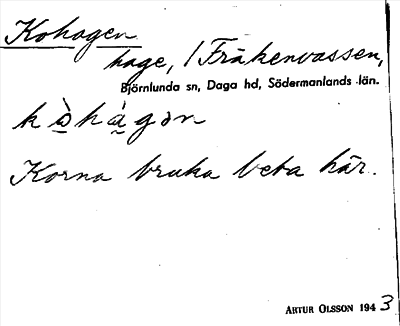 Kohagen
hage, / Fräkenvassen,
Björnlunda sn, Daga hd, Södermanlands län.
kò̱hà̱gən
Korna bruka beta här.
ARTUR OLSSON 1943